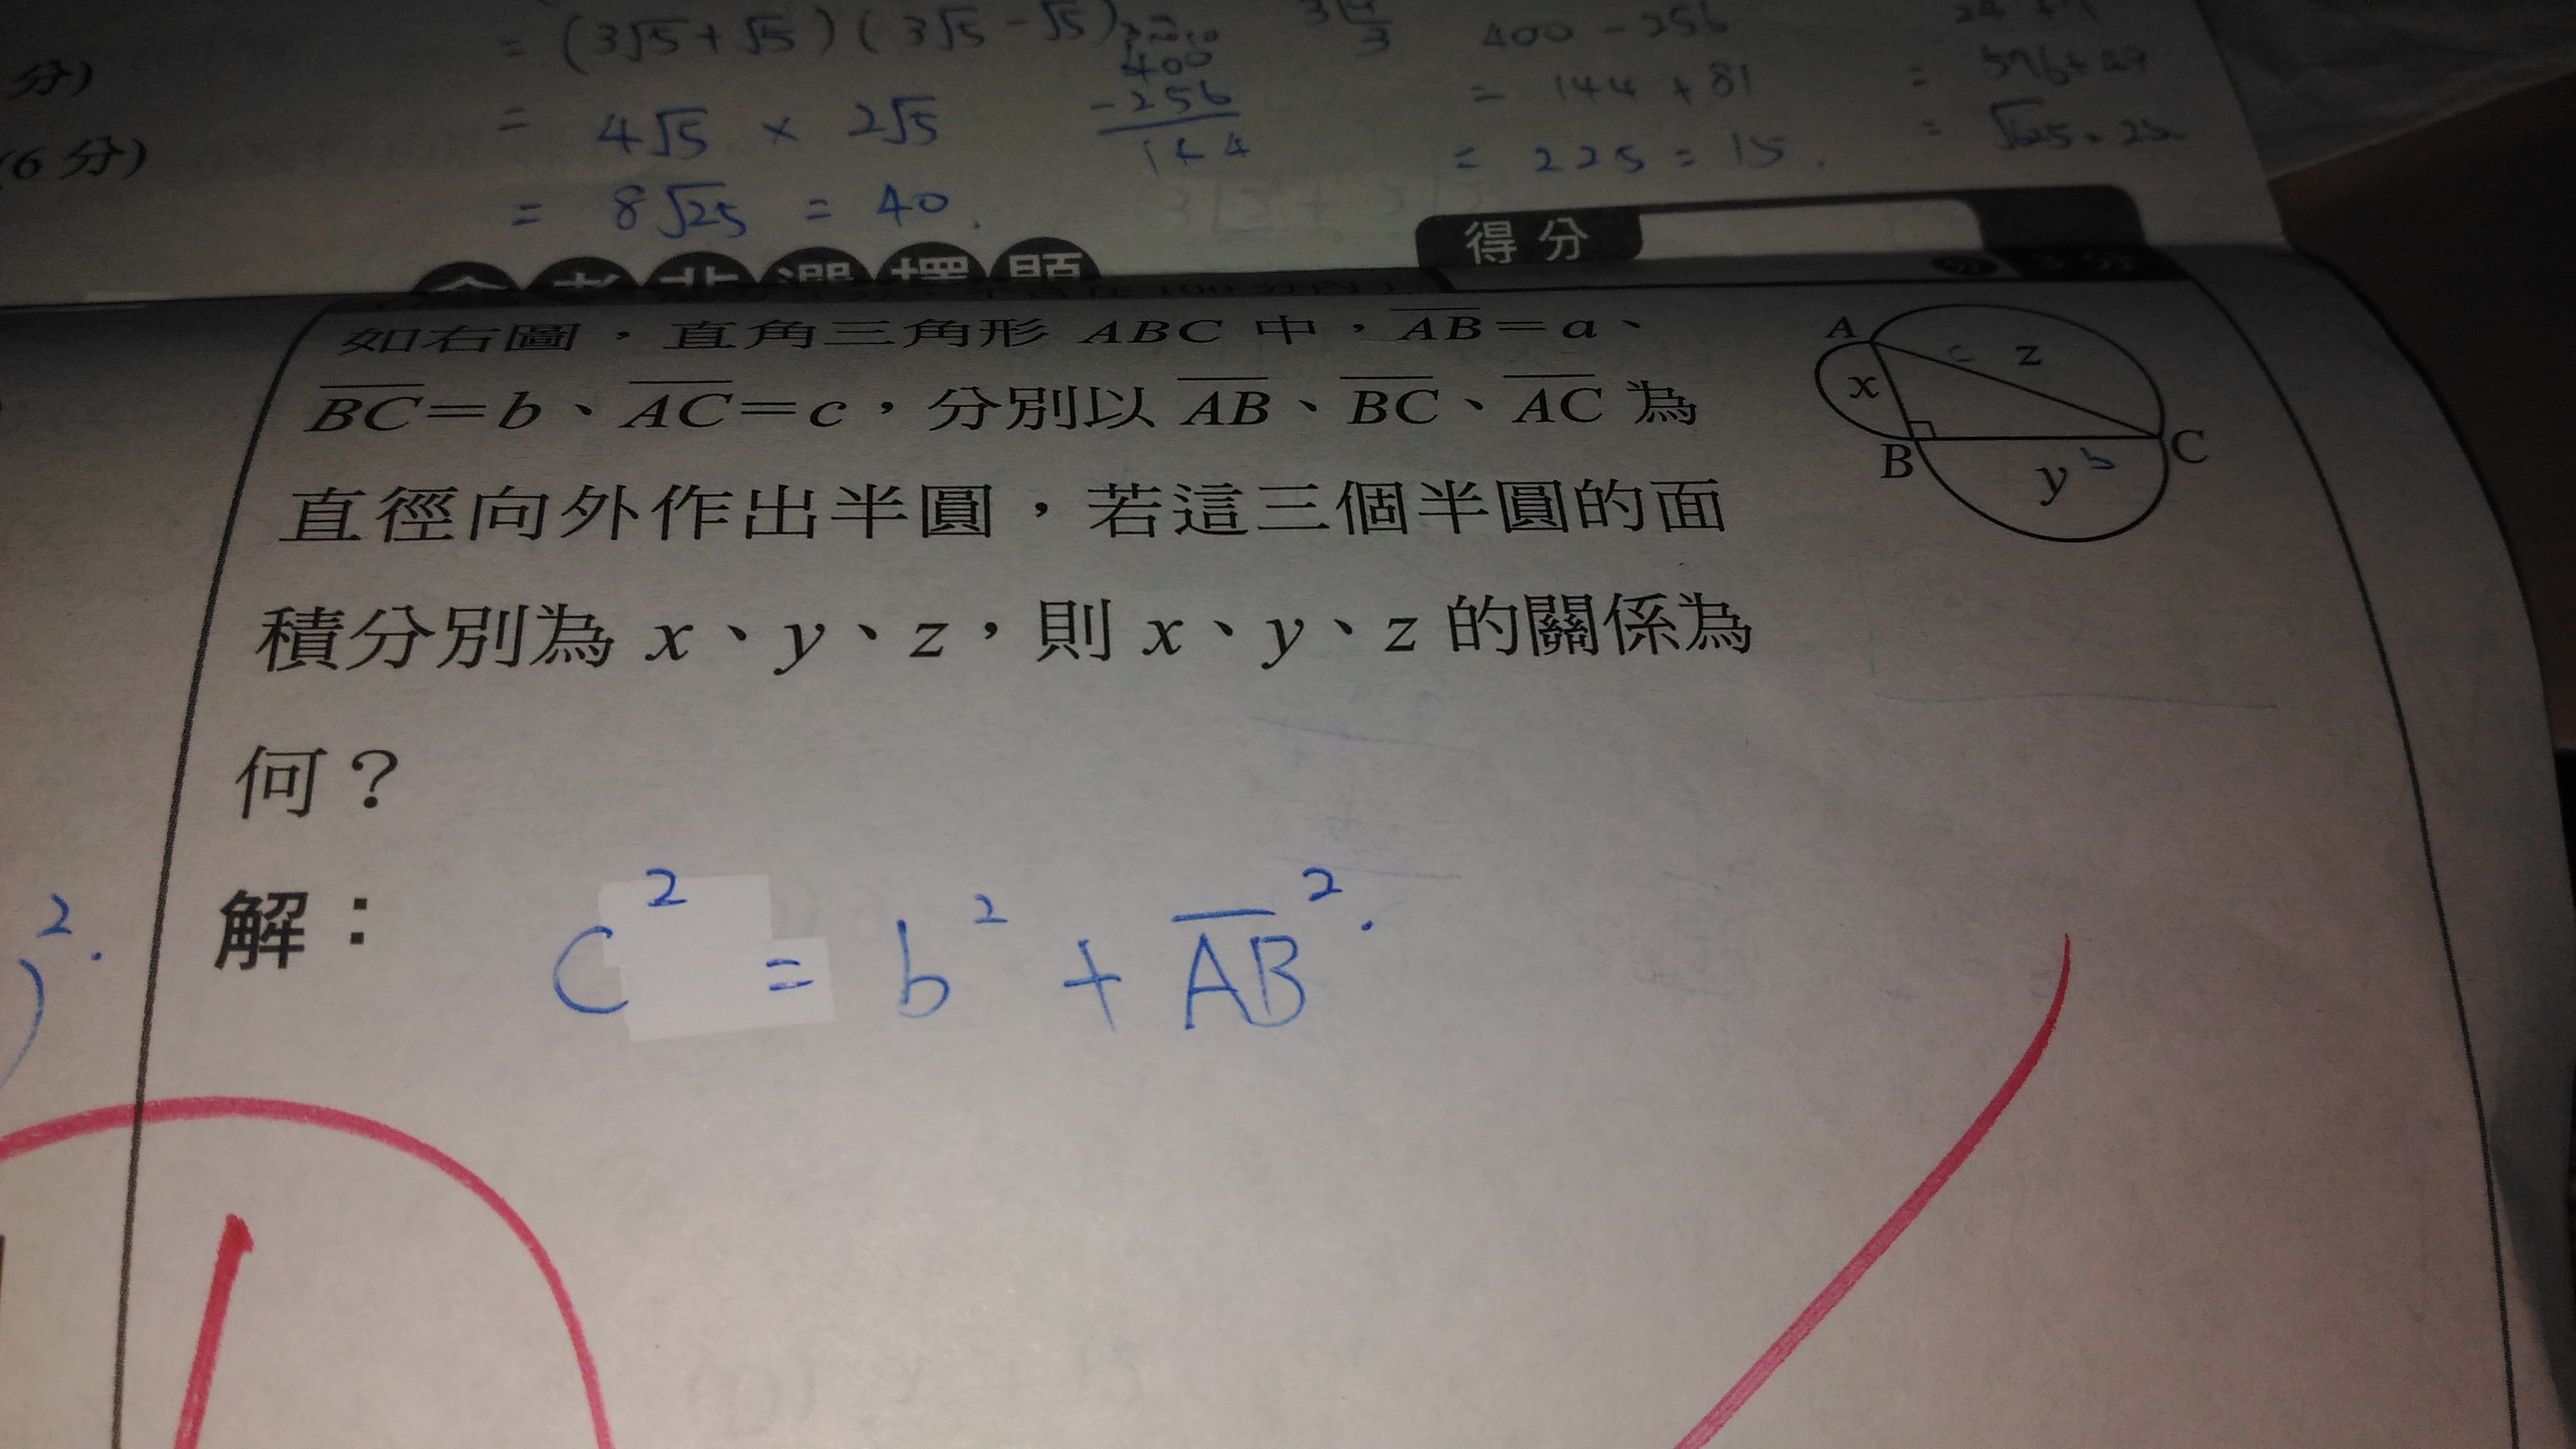 = (3√5+√5)(3√5-√5)
= 4√5 × 2√5
= 8√25 = 40.
400
-256
144
3
400 - 256
= 144 + 81
= 225 = 15.
= √625 = 25.
分)
(6分)
得分
如右圖，直角三角形 ABC 中，AB=a、
BC=b、AC=c，分別以 AB、BC、AC 為
直徑向外作出半圓，若這三個半圓的面
積分別為 x、y、z，則 x、y、z 的關係為
何？
A
c
z
x
B
y
b
C
解：
C² = b² + AB².
)².